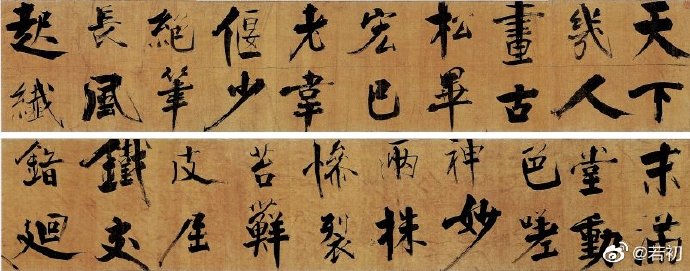 天下
幾人
畫古
松畢
宏已
老韋
偃少
絕筆
長風
起纖
末滿
堂動
色嗟
神妙
兩株
慘裂
苔蘚
皮屈
鐵交
錯迴
@若初